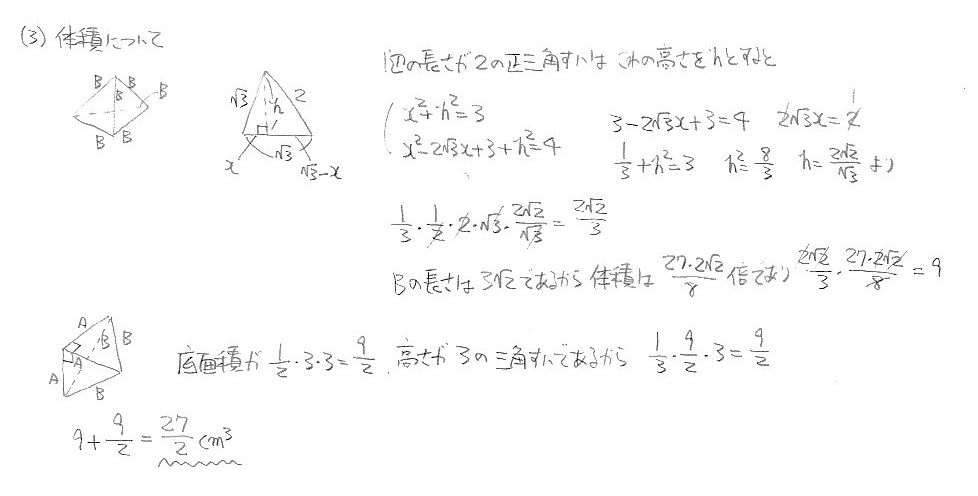 (3) 体積について
B B B B B
√3 2 h x √3 √3-x
1辺の長さが2の正三角すいは これの高さをhとすると
x²+h²=3
x²-2√3x+3+h²=4
3-2√3x+3=4 2√3x=2 1
1/3+h²=3 h²=8/3 h=2√2/√3 より
1/3・1/2・2・√3・2√2/√3=2√2/3
Bの長さは3√2であるから 体積は 27・2√2/8 倍であり 2√2/3・27・2√2/8=9
A A A B B B
底面積が 1/2・3・3=9/2、高さが3の三角すいであるから 1/3・9/2・3=9/2
9+9/2=27/2 cm³